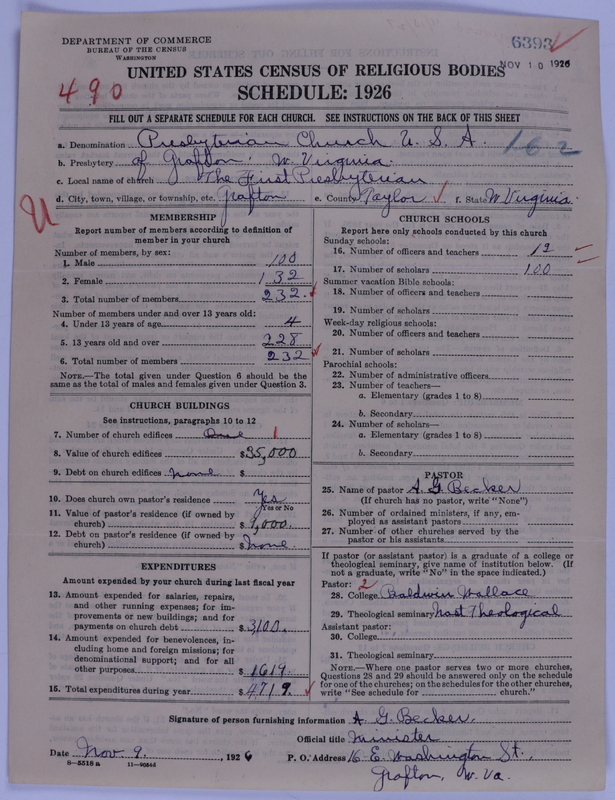 DEPARTMENT OF COMMERCE
BUREAU OF THE CENSUS
WASHINGTON
6393
NOV 10 1926
UNITED STATES CENSUS OF RELIGIOUS BODIES
SCHEDULE: 1926
490
FILL OUT A SEPARATE SCHEDULE FOR EACH CHURCH. SEE INSTRUCTIONS ON THE BACK OF THIS SHEET
a. Denomination Presbyterian Church U. S. A. 162
b. Presbytery of Grafton. W. Virginia.
c. Local name of church The First Presbyterian
d. City, town, village, or township, etc. Grafton e. County Taylor f. State W Virginia.
MEMBERSHIP
Report number of members according to definition of
member in your church
Number of members, by sex:
1. Male 100
2. Female 132
3. Total number of members 232.
Number of members under and over 13 years old:
4. Under 13 years of age 4
5. 13 years old and over 228
6. Total number of members 232
NOTE.—The total given under Question 6 should be
same as the total of males and females given under Question 3.
CHURCH BUILDINGS
See instructions, paragraphs 10 to 12
7. Number of church edifices One 1
8. Value of church edifices $35,000
9. Debt on church edifices none $
10. Does church own pastor's residence Yes
Yes or No
11. Value of pastor's residence (if owned by
church) $
12. Debt on pastor's residence (if owned by
church) $ None
EXPENDITURES
Amount expended by your church during last fiscal year
13. Amount expended for salaries, repairs,
and other running expenses; for im-
provements or new buildings; and for
payments on church debt $3100.
14. Amount expended for benevolences, in-
cluding home and foreign missions; for
denominational support; and for all
other purposes $1619.
15. Total expenditures during year $4719.
CHURCH SCHOOLS
Report here only schools conducted by this church
Sunday schools:
16. Number of officers and teachers
17. Number of scholars 100
Summer vacation Bible schools:
18. Number of officers and teachers
19. Number of scholars
Week-day religious schools:
20. Number of officers and teachers
21. Number of scholars
Parochial schools:
22. Number of administrative officers
23. Number of teachers—
a. Elementary (grades 1 to 8)
b. Secondary
24. Number of scholars—
a. Elementary (grades 1 to 8)
b. Secondary
PASTOR
25. Name of pastor A. G. Becker
(If church has no pastor, write "None")
26. Number of ordained ministers, if any, em-
ployed as assistant pastors
27. Number of other churches served by the
pastor or his assistants
If pastor (or assistant pastor) is a graduate of a college or
theological seminary, give name of institution below. (If
not a graduate, write "No" in the space indicated.)
Pastor: 2
28. College Baldwin Wallace
29. Theological seminary Nast Theological
Assistant pastor:
30. College
31. Theological seminary
NOTE.—Where one pastor serves two or more churches,
Questions 28 and 29 should be answered only on the schedule
for one of the churches; on the schedules for the other churches,
write "See schedule for church."
Signature of person furnishing information A. G. Becker.
Official title Minister
Date Nov. 9. , 1926 P. O. Address 16 E. Washington St.,
8—5518 a
Grafton, W. Va.